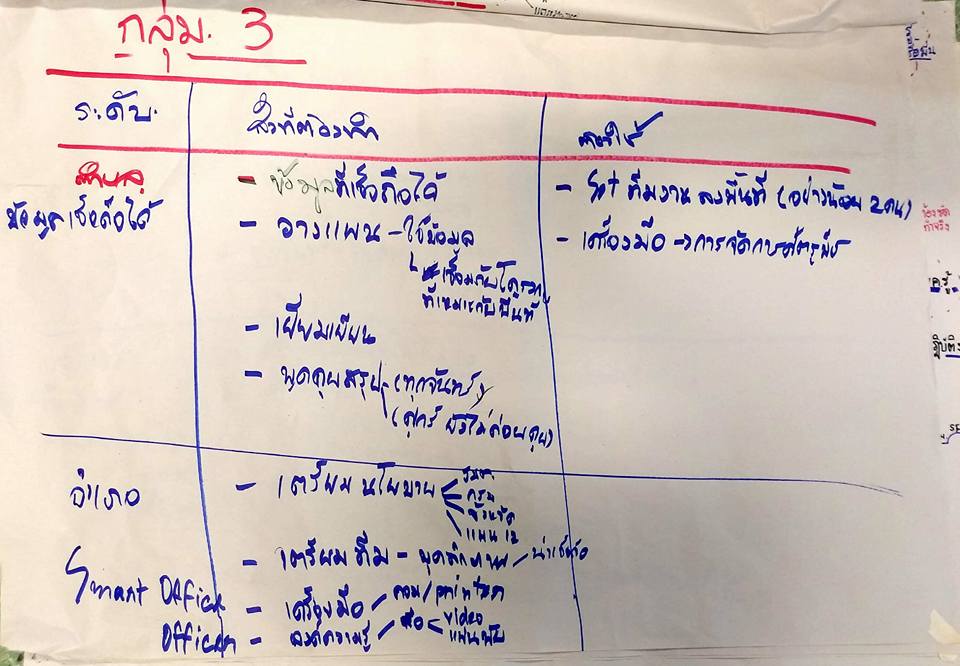 กลุ่ม. 3
ระดับ
สิ่งที่ต้องทำ
ตำบล
ข้อมูลเชื่อถือได้
- ข้อมูลที่เชื่อถือได้
- วางแผน - ใช้ข้อมูล
เชื่อมกับโครงการ
ที่เหมาะกับพื้นที่
- เยี่ยมเยียน
- พูดคุยสรุป (ทุกจันทร์)
(ศุกร์ ยังไม่ค่อยคุย)
- Set ทีมงาน ลงพื้นที่ (อย่างน้อย 2 คน)
- เครื่องมือ → การจัดการศัตรูพืช
อำเภอ
Smart Office
Officer
- เตรียมนโยบาย
กรม
จังหวัด
แผน 12
- เตรียมทีม - บุคลิกภาพ / น่าเชื่อถือ
- เครื่องมือ คอม/printer
- องค์ความรู้ สื่อ video
แผ่นพับ
ต้องชัด
ทำจริง